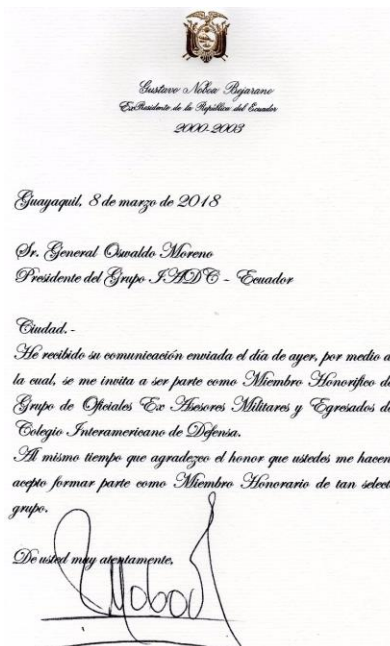 Gustavo Noboa Bejarano
ExPresidente de la República del Ecuador
2000-2003
Guayaquil, 8 de marzo de 2018
Sr. General Oswaldo Moreno
Presidente del Grupo IADC - Ecuador
Ciudad.-
He recibido su comunicación enviada el día de ayer, por medio d
la cual, se me invita a ser parte como Miembro Honorífico de
Grupo de Oficiales Ex Asesores Militares y Egresados de
Colegio Interamericano de Defensa.
Al mismo tiempo que agradezco el honor que ustedes me hacen
acepto formar parte como Miembro Honorario de tan select
grupo.
De usted muy atentamente,
Noboa